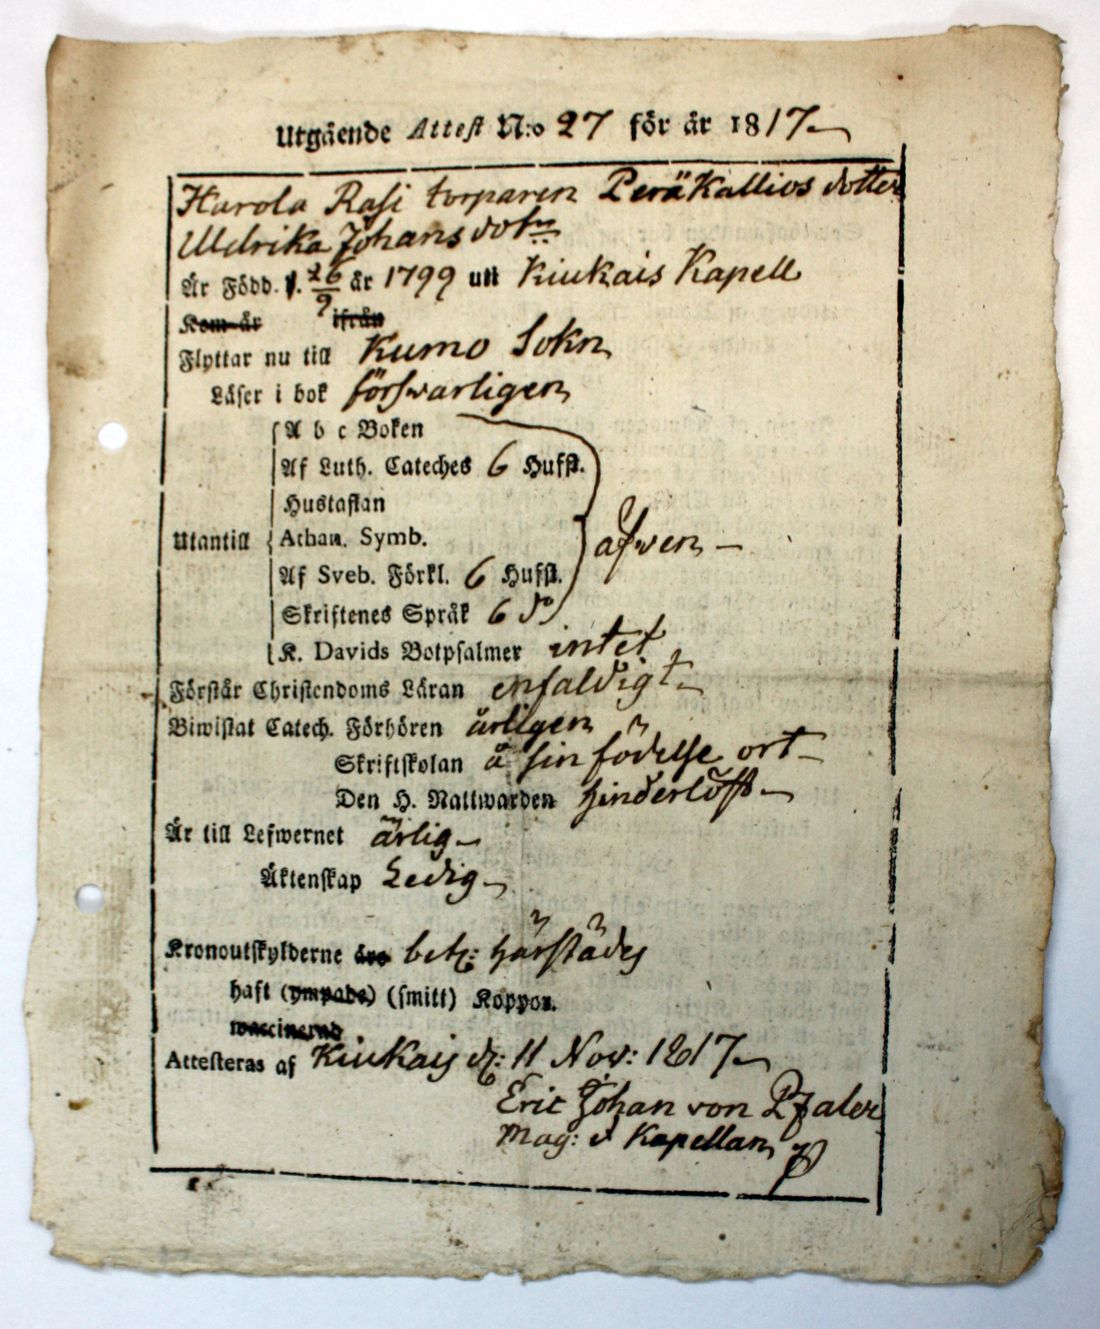 Utgående Attest N:o 27 för år 1817
Harola Rasi torparen Peräkallios dotter
Uldrika Johansdotr
Är Född. d. 26/9 år 1799 uti Kiukais Kapell
Kom år ifrån
Flyttar nu till Kumo Sokn
Läser i bok försvarligen
A b c Boken
Af Luth. Cateches 6 Hufst.
Hustaflan
Utantill Athan. Symb. äfven
Af Sveb. Förkl. 6 Hufst.
Skriftenes Språk 6 do
K. Davids Botpsalmer intet
Förstår Christendoms Läran enfaldigt
Biwistat Catech. Förhören årligen
Skriftskolan å sin födelse ort
Den H. Nattwarden hinderlöst
Är till Lefwernet ärlig
Äktenskap Ledig
Kronoutskylderne äro bet: härstädes
haft (ympade) (smitt) Koppor.
waccinerad
Attesteras af Kiukais d: 11 Nov: 1817
Eric Johan von Pfaler
Mag: o Kapellan